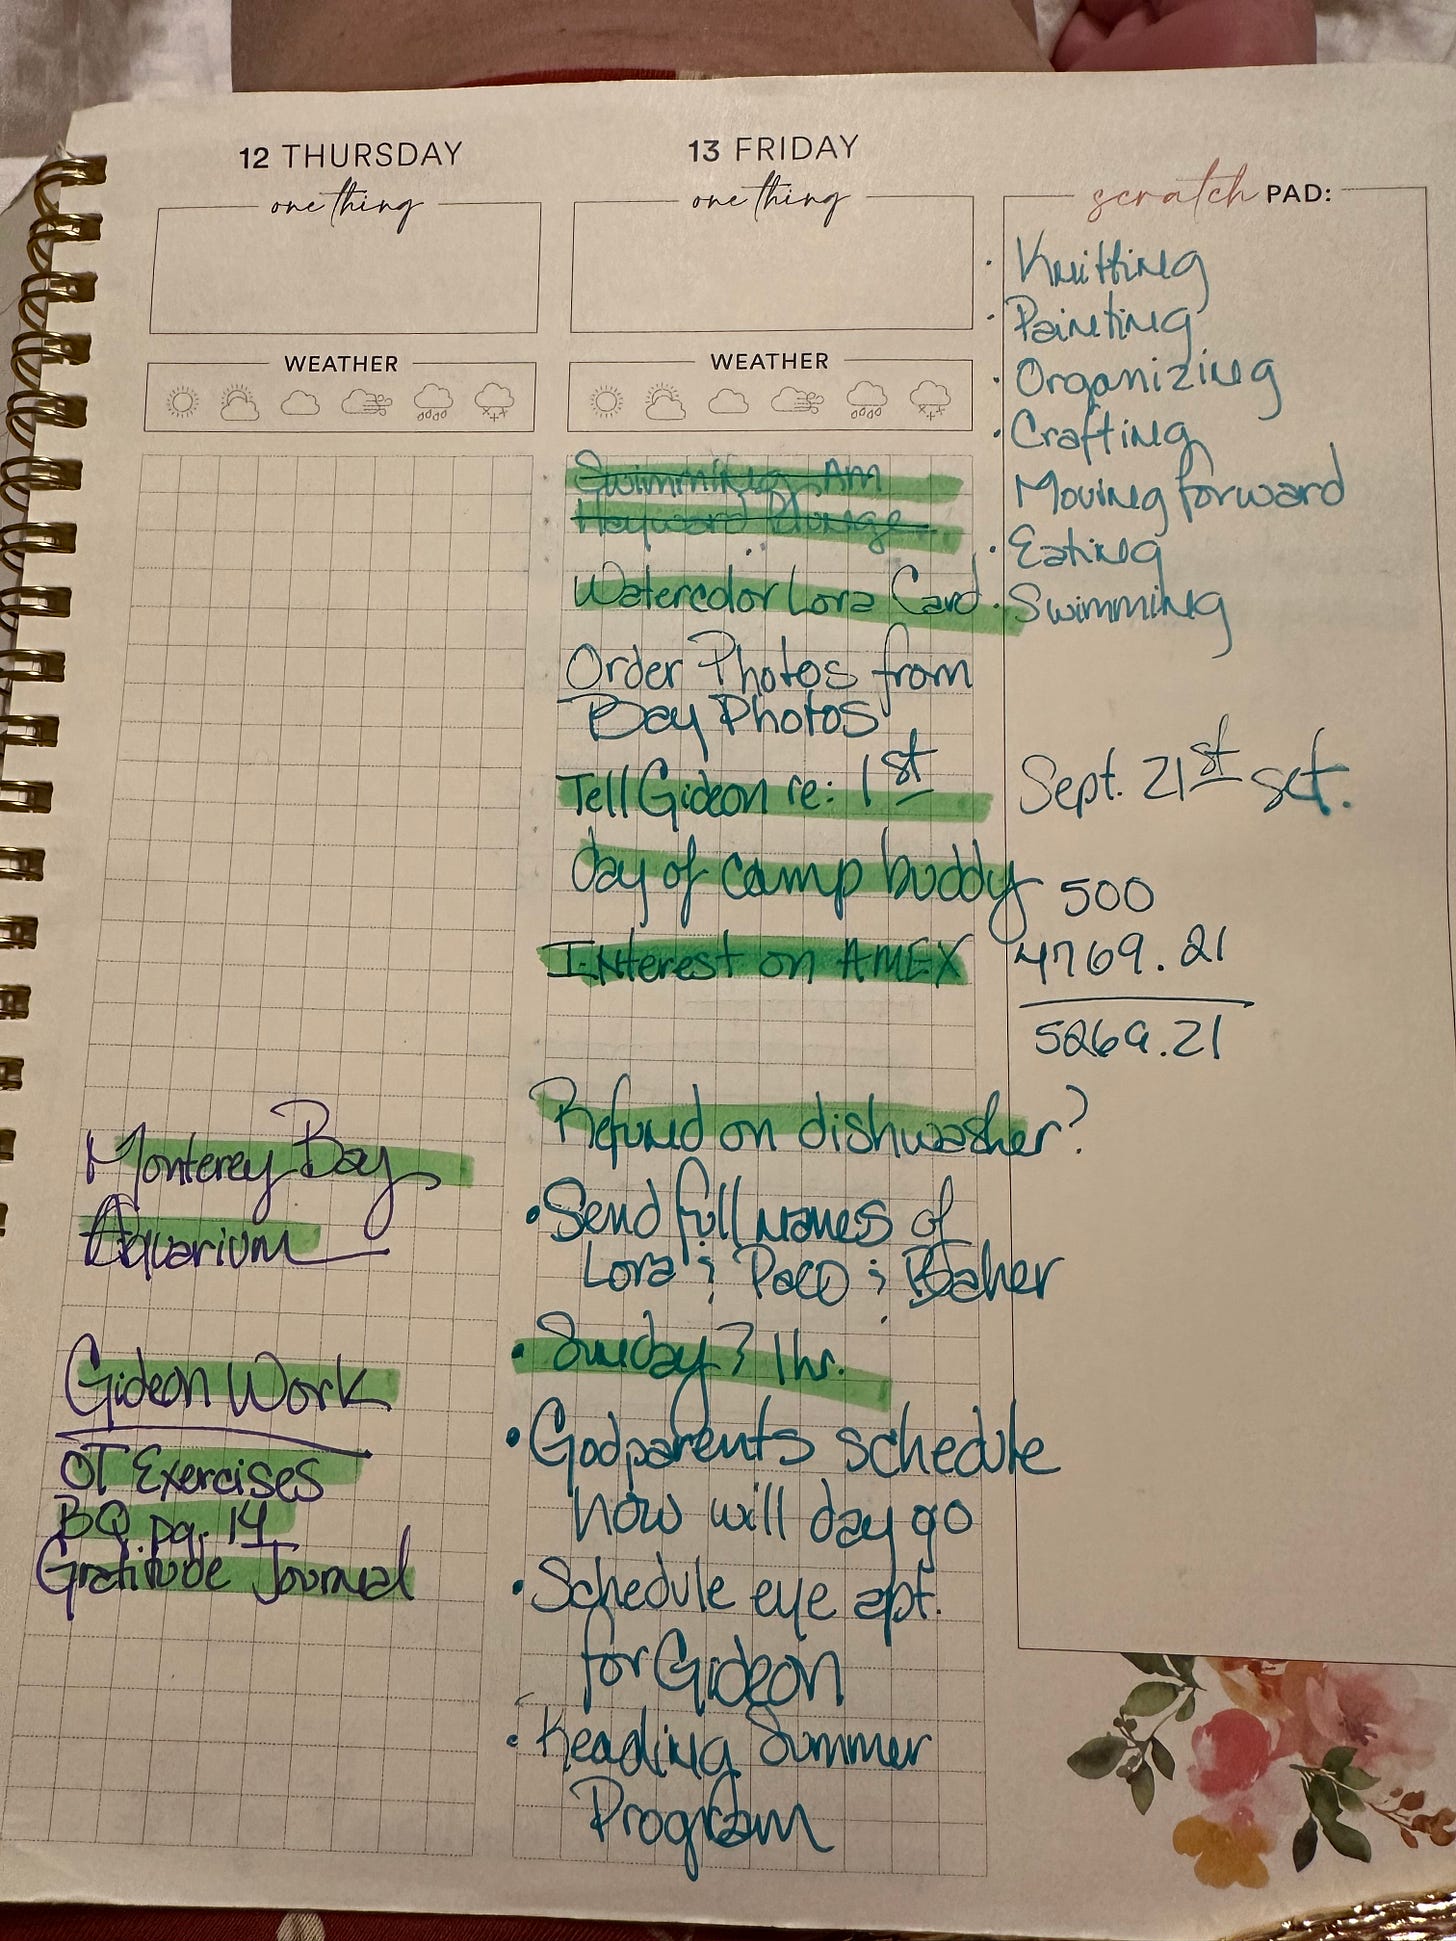 12 THURSDAY
one thing
WEATHER
Monterey Bay
Aquarium
Gideon Work
OT Exercises
BQ pg. 14
Gratitude Journal
13 FRIDAY
one thing
WEATHER
Swimming AM
Hayward Plunge
Watercolor Lora Card
Order Photos from
Bay Photos
Tell Gideon re: 1st
day of camp buddy
Interest on AMEX
Refund on dishwasher?
• Send full names of
Lora & Paco & Baher
• Sunday? 1hr.
• Godparents schedule
how will day go
• Schedule eye apt.
for Gideon
• Reading Summer
Program
scratch PAD:
• Knitting
• Painting
• Organizing
• Crafting
Moving forward
• Eating
• Swimming
Sept. 21st set.
500
4769.21
5269.21